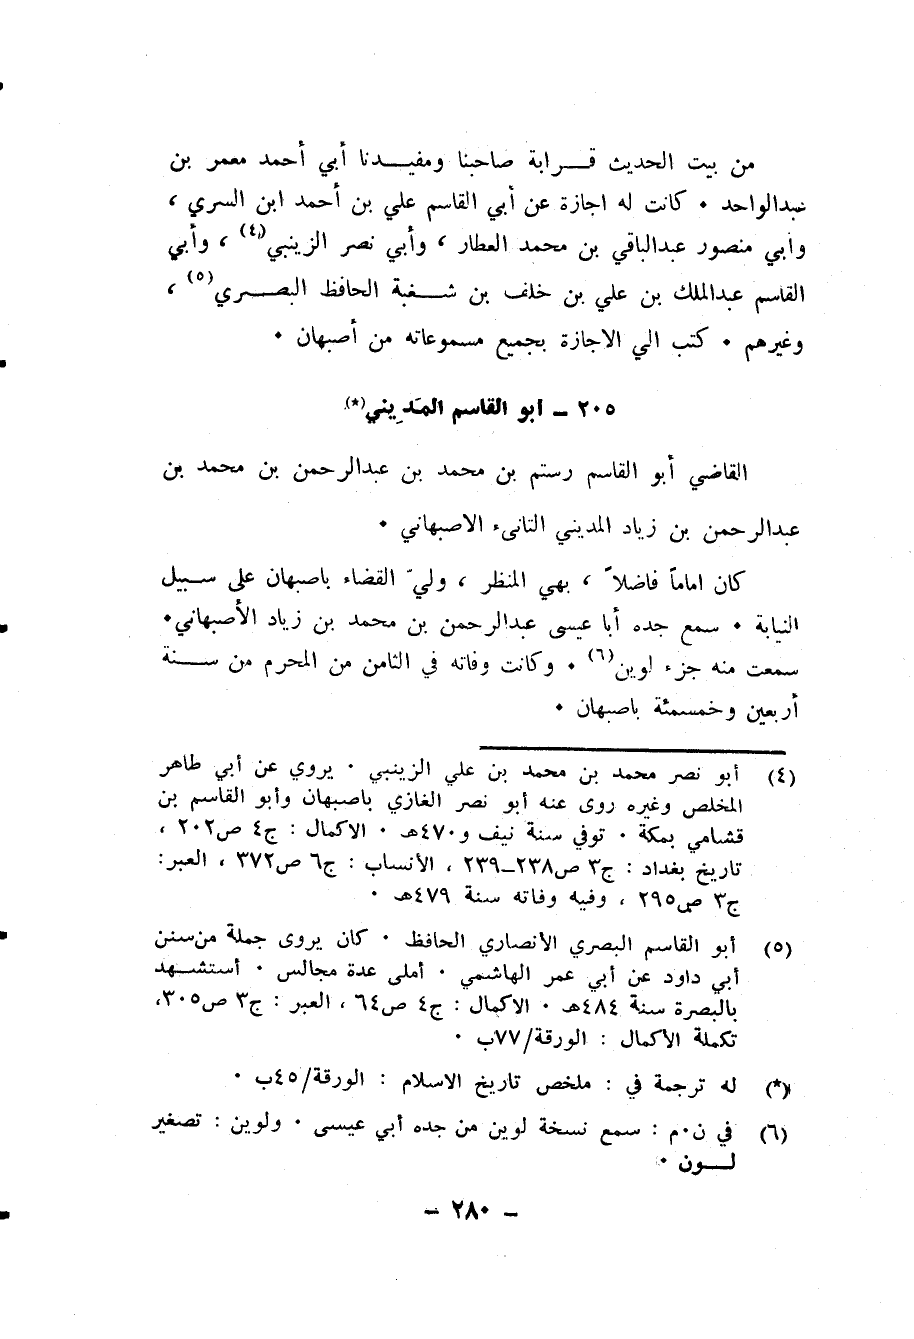 من بيت الحديث قـــرابة صاحبنا ومفيـــدنا أبي أحمد معمر بن
عبدالواحد ٠ كانت له اجازة عن أبي القاسم علي بن أحمد ابن السري ،
وأبي منصور عبدالباقي بن محمد العطار ، وأبي نصر الزينبي(٤) ، وأبي
القاسم عبدالملك بن علي بن خلف بن شـــغبة الحافظ البصـــري(٥) ،
وغيرهم ٠ كتب الي الاجازة بجميع مسموعاته من أصبهان ٠
٢٠٥ ــ ابو القاسم المَدِيني(*)
القاضي أبو القاسم رستم بن محمد بن عبدالرحمن بن محمد بن
عبدالرحمن بن زياد المديني التانىء الاصبهاني ٠
كان اماماً فاضلاً ، بهي المنظر ، وليّ القضاء باصبهان على سـبيل
النيابة ٠ سمع جده أبا عيسى عبدالرحمن بن محمد بن زياد الأصبهاني٠
سمعت منه جزء لوين(٦) ٠ وكانت وفاته في الثامن من المحرم من ســنة
أربعين وخمسمئة باصبهان ٠
(٤) أبو نصر محمد بن محمد بن علي الزينبي ٠ يروي عن أبي طاهر
المخلص وغيره روى عنه أبو نصر الغازي باصبهان وأبو القاسم بن
قشامي بمكة ٠ توفي سنة نيف و٤٧٠هـ ٠ الاكمال : ج٤ ص٢٠٢ ،
تاريخ بغداد : ج٣ ص٢٣٨ــ٢٣٩ ، الأنساب : ج٦ ص٣٧٢ ، العبر:
ج٣ ص٢٩٥ ، وفيه وفاته سنة ٤٧٩هـ ٠
(٥) أبو القاسم البصري الأنصاري الحافظ ٠ كان يروى جملة من سنن
أبي داود عن أبي عمر الهاشمي ٠ أملى عدة مجالس ٠ أستشـهد
بالبصرة سنة ٤٨٤هـ ٠ الاكمال : ج٤ ص٦٤ ، العبر : ج٣ ص٣٠٥،
تكملة الأكمال : الورقة/٧٧ب ٠
(*) له ترجمة في : ملخص تاريخ الاسلام : الورقة/٤٥ب ٠
(٦) في ن٠م : سمع نسخة لوين من جده أبي عيسى ٠ ولوين : تصغير
لـــون ٠
ــ ٢٨٠ ــ